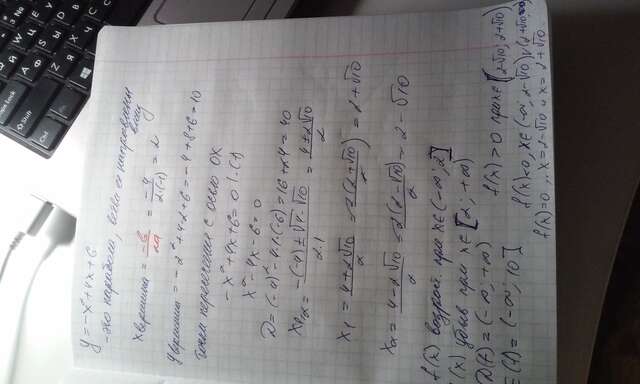 y = -x² + 4x + 6
- это парабола, ветви её направлены
вниз
x вершина = -b/2a = -4/2·(-1) = 2
y вершина = -2² + 4·2 + 6 = -4 + 8 + 6 = 10
Точки пересечения с осью OX
-x² + 4x + 6 = 0 | · (-1)
x² - 4x - 6 = 0
D = (-4)² - 4·1·(-6) = 16 + 24 = 40
x₁,₂ = -(-4) ± √4·√10 / 2·1 = 4 ± 2√10 / 2
x₁ = 4 + 2√10 / 2 = 2(2 + √10) / 2 = 2 + √10
x₂ = 4 - 2√10 / 2 = 2(2 - √10) / 2 = 2 - √10
f(x) возраст. при x∈(-∞; 2]
f(x) убыв при x∈[2; +∞)
D(f) = (-∞; +∞) f(x) > 0 при x∈(2-√10; 2+√10)
E(f) = (-∞; 10] f(x) < 0, x∈(-∞; 2-√10) ∪ (2+√10; +∞)
f(x) = 0 x = 2-√10 и x = 2+√10.
Caps Lock
Shift
Ctrl